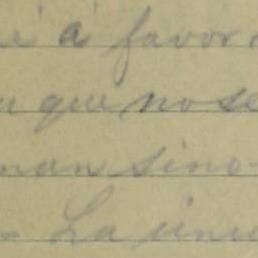 é á favor
que no se
man sino
La úni